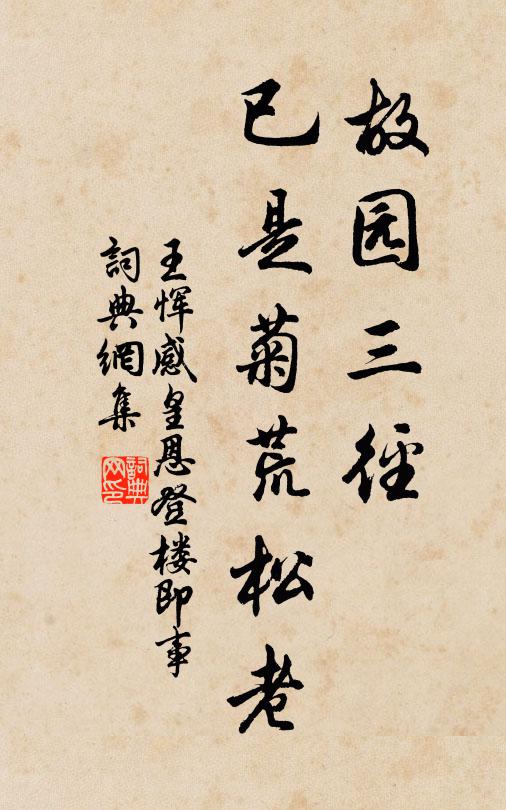 故园三径
已是菊荒松老
王恽感皇恩登楼即事
詞典網集
詞典
网印